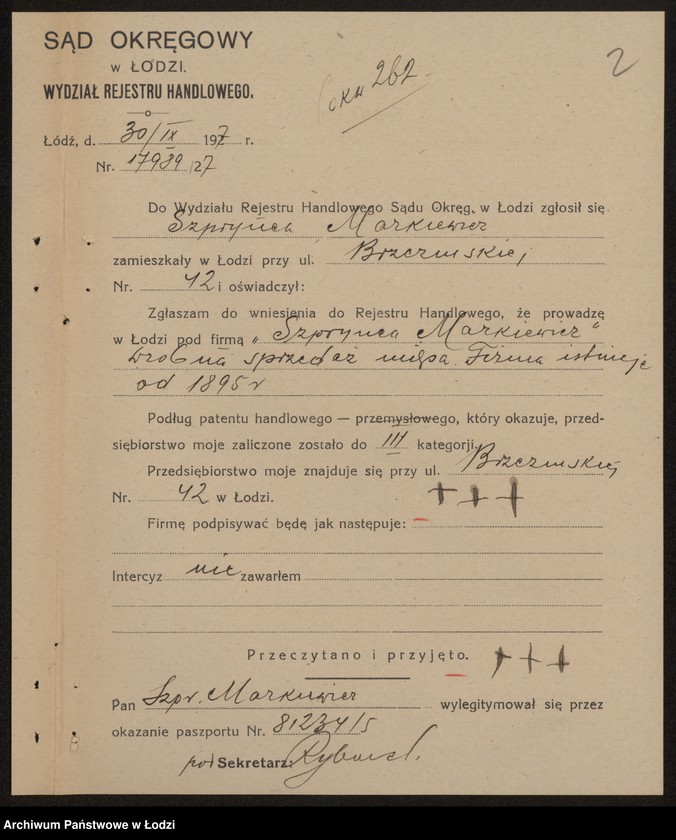 SĄD OKRĘGOWY
w ŁODZI.
WYDZIAŁ REJESTRU HANDLOWEGO.
2
Łódź, d. 30/IX 1927 r.
Nr. 17939/27
Do Wydziału Rejestru Handlowego Sądu Okręg. w Łodzi zgłosił się
Szpryńca Markiewicz
zamieszkały w Łodzi przy ul. Brzezinskiej
Nr. 42 i oświadczył:
Zgłaszam do wniesienia do Rejestru Handlowego, że prowadzę
w Łodzi pod firmą „Szpryńca Markiewicz"
drobna sprzedaż mięsa. Firma istnieje
od 1895 r
Podług patentu handlowego — przemysłowego, który okazuje, przed-
siębiorstwo moje zaliczone zostało do III kategorji.
Przedsiębiorstwo moje znajduje się przy ul. Brzezinskiej
Nr. 42 w Łodzi. +++
Firmę podpisywać będę jak następuje:
Intercyz nie zawarłem
Przeczytano i przyjęto. +++
Pan Szpr. Markiewicz wylegitymował się przez
okazanie paszportu Nr. 81234/5
pod Sekretarz:
Archiwum Państwowe w Łodzi